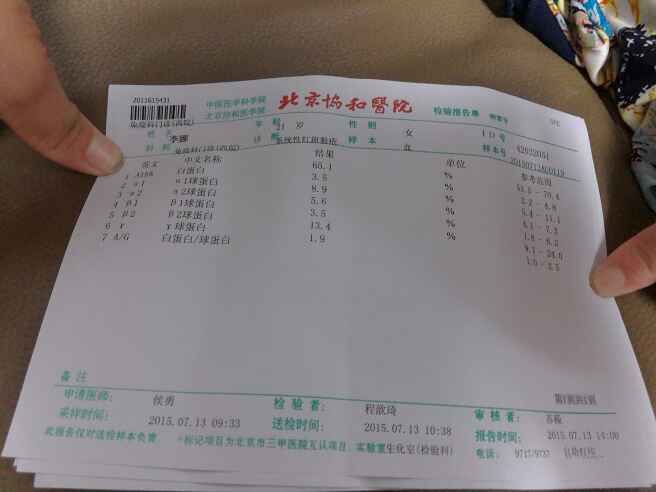 2011615431
中国医学科学院
北京协和医学院
北京协和醫院
检验报告单
免疫科门诊(西院)
姓名 李娜 年龄 21 岁 性别 女 ID号
科别 免疫科门诊(西院) 诊断 系统性红斑狼疮 样本 血 样本号
英文 中文名称 结果 单位 参考范围
1 Alb% 白蛋白 65.1 % 53.5 - 70.4
2 α1 α1球蛋白 3.5 %
3 α2 α2球蛋白 8.9 % 5.4 - 11.1
4 β1 β1球蛋白 5.6 %
5 β2 β2球蛋白 3.5 %
6 γ γ球蛋白 13.4 %
7 A/G 白蛋白/球蛋白 1.9
备注
申请医师: 侯勇 检验者: 程歆琦 审核者:
采样时间: 2015.07.13 09:33 送检时间: 2015.07.13 10:38 报告时间: 2015.07.13 14:00
此报告仅对送检样本负责 *标记项目为北京市三甲医院互认项目,实验室生化室(检验科) 电话: